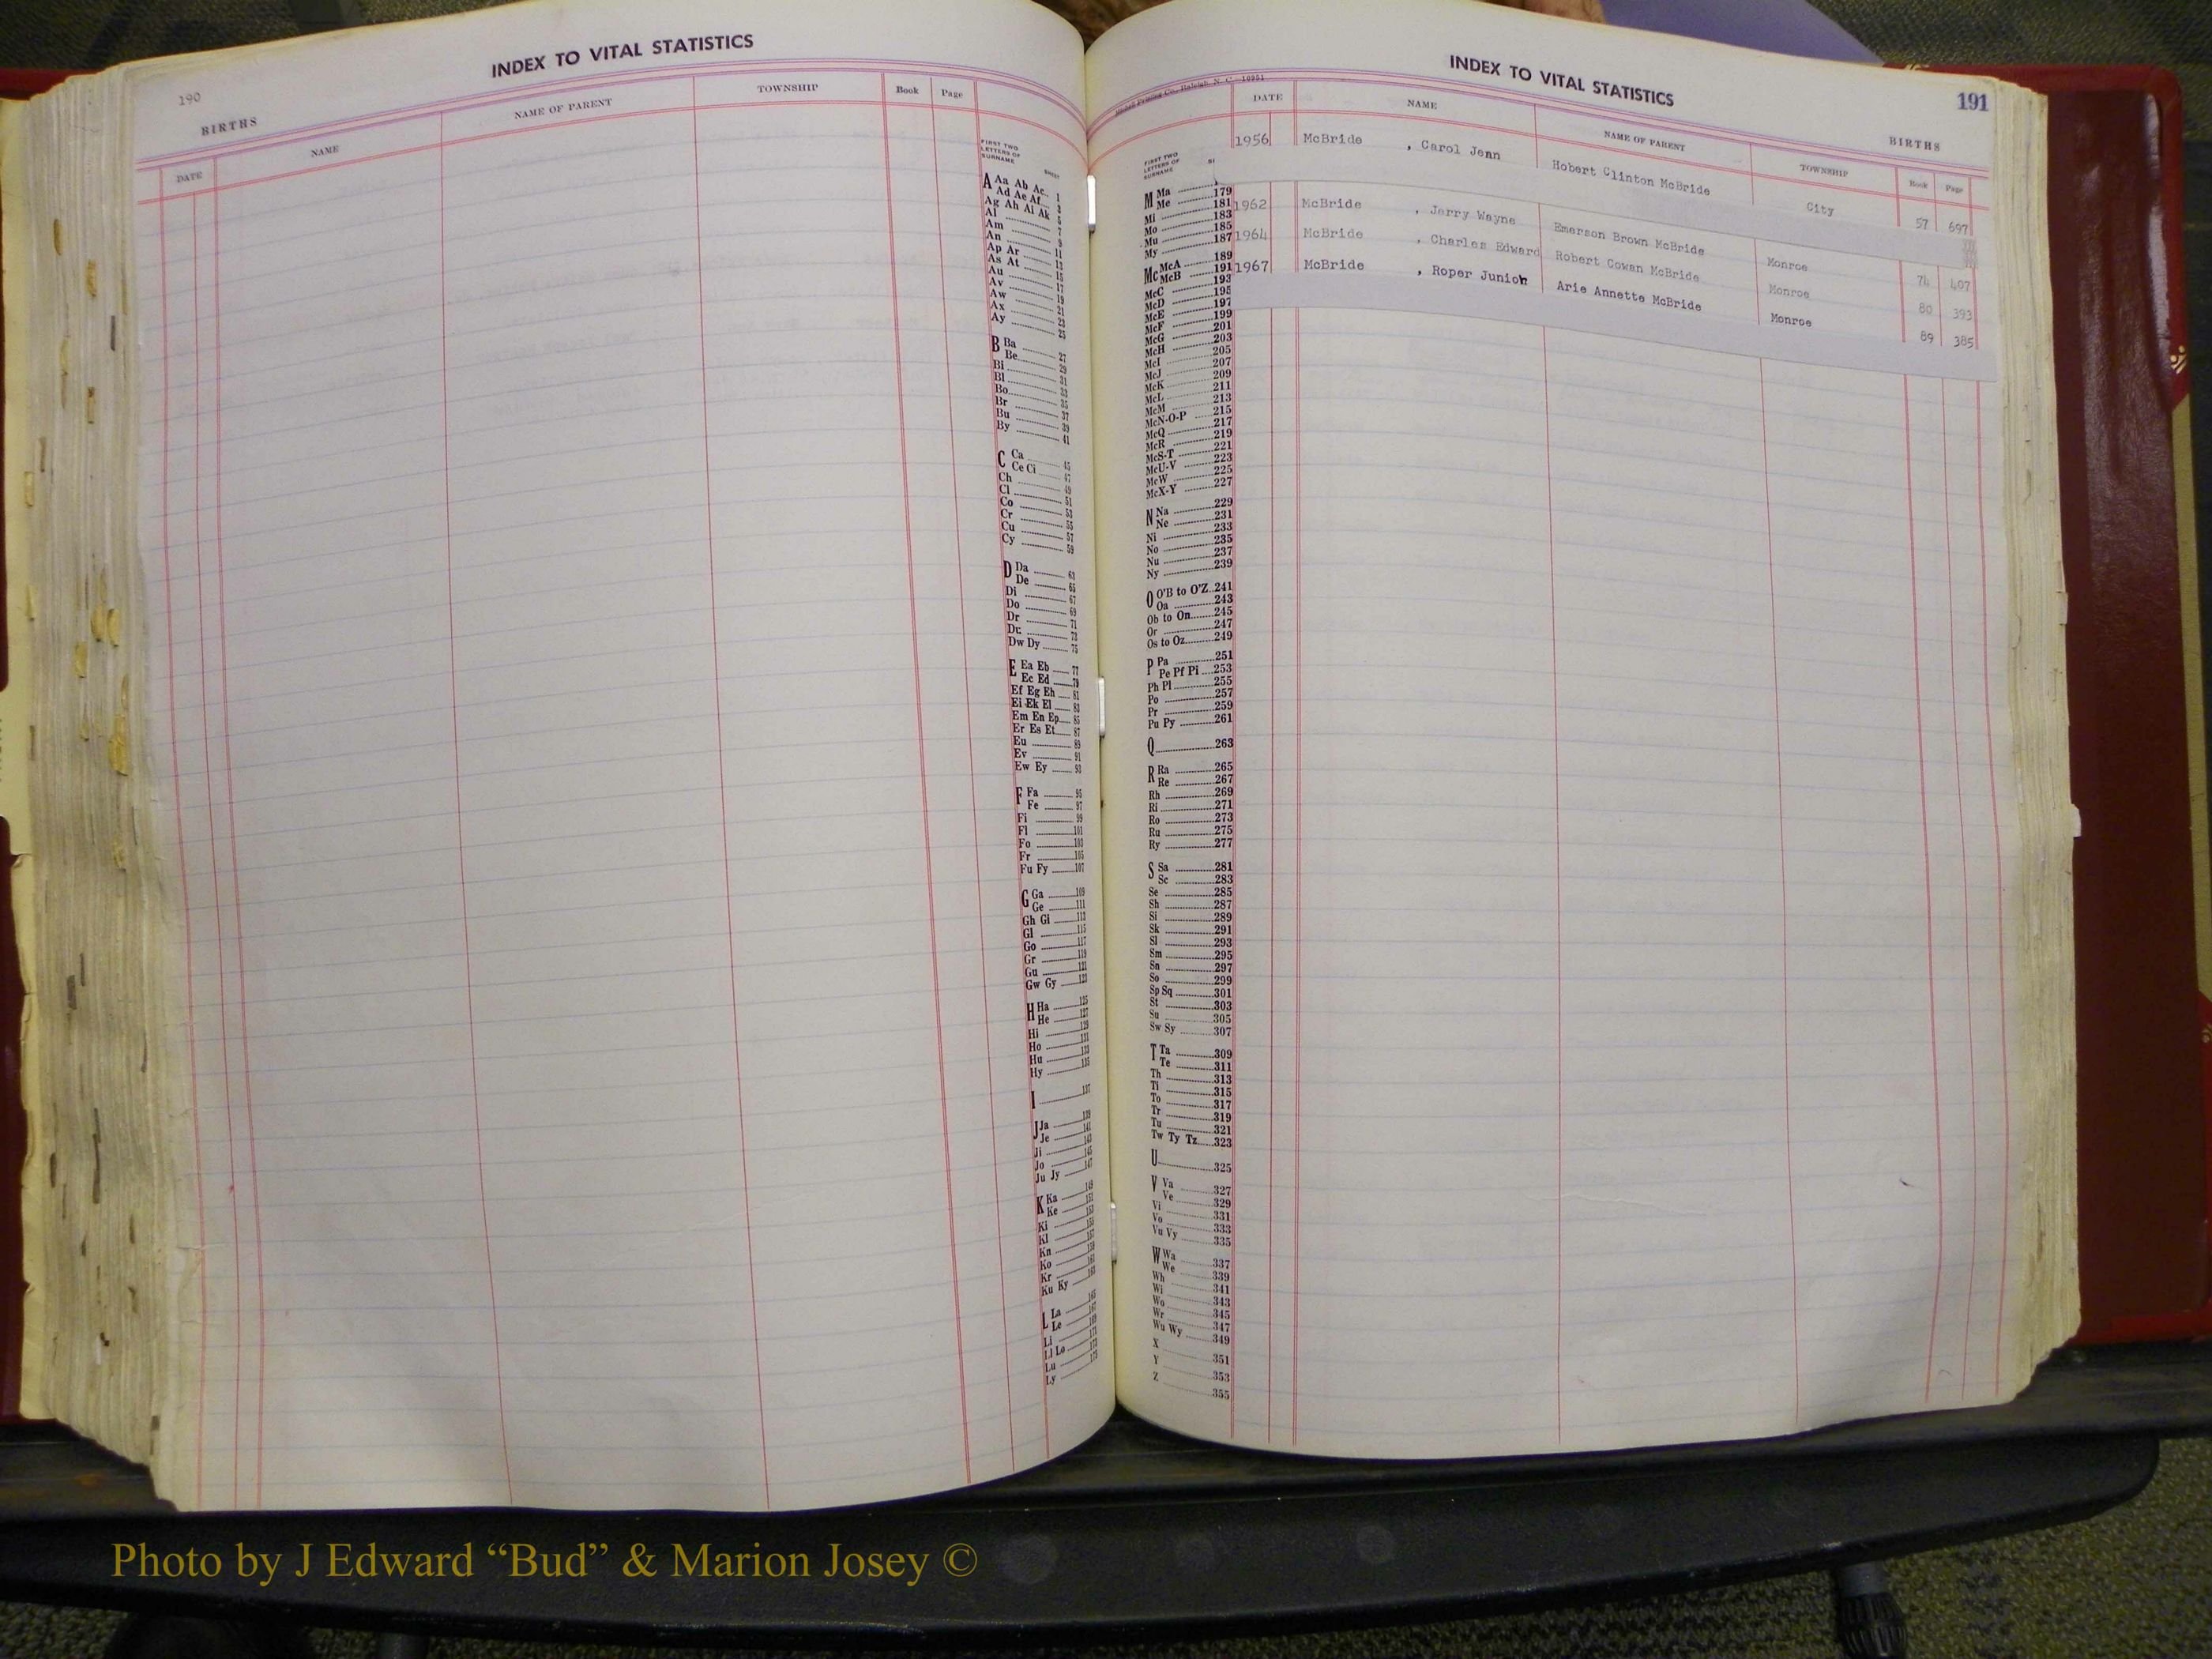 190
INDEX TO VITAL STATISTICS
BIRTHS
DATE NAME NAME OF PARENT TOWNSHIP Book Page
FIRST TWO
LETTERS OF
SURNAME
SHEET
A Aa Ab Ac 1
Ad Ae Af 3
Ag Ah Ai Ak 5
Al 7
Am 9
An 11
Ap Ar 13
As At 15
Au 17
Av 19
Aw 21
Ax 23
Ay 25
B Ba 27
Be 29
Bi 31
Bl 33
Bo 35
Br 37
Bu 39
By 41
C Ca 45
Ce Ci 47
Ch 49
Cl 51
Co 53
Cr 55
Cu 57
Cy 59
D Da 63
De 65
Di 67
Do 69
Dr 71
Du 73
Dw Dy 75
E Ea Eb 77
Ec Ed 79
Ef Eg Eh 81
Ei Ek El 83
Em En Ep 85
Er Es Et 87
Eu 89
Ev 91
Ew Ey 93
F Fa 95
Fe 97
Fi 99
Fl 101
Fo 103
Fr 105
Fu Fy 107
G Ga 109
Ge 111
Gh Gi 113
Gl 115
Go 117
Gr 119
Gu 121
Gw Gy 123
H Ha 125
He 127
Hi 129
Ho 131
Hu 133
Hy 135
I 137
J Ja 139
Je 141
Ji 143
Jo 145
Ju Jy 147
K Ka 149
Ke 151
Ki 153
Kl 155
Kn 157
Ko 159
Kr 161
Ku Ky 163
L La 165
Le 167
Li 169
Ll Lo 171
Lu 173
Ly 175
INDEX TO VITAL STATISTICS
191
Raleigh, N. C. 10951
BIRTHS
DATE NAME NAME OF PARENT TOWNSHIP Book Page
1956 McBride , Carol Jean Hobert Clinton McBride City 57 697
1962 McBride , Jerry Wayne Emerson Brown McBride Monroe 74 407
1964 McBride , Charles Edward Robert Cowan McBride Monroe 80 393
1967 McBride , Roper Junior Arie Annette McBride Monroe 89 385
FIRST TWO
LETTERS OF
SURNAME
M Ma 179
Me 181
Mi 183
Mo 185
Mu 187
My 189
Mc McA 191
McB 193
McC 195
McD 197
McE 199
McF 201
McG 203
McH 205
McI 207
McJ 209
McK 211
McL 213
McM 215
McN-O-P 217
McQ 219
McR 221
McS-T 223
McU-V 225
McW 227
McX-Y
N Na 229
Ne 231
Ni 233
No 235
Nu 237
Ny 239
O O'B to O'Z 241
Oa 243
Ob to On 245
Or 247
Os to Oz 249
P Pa 251
Pe Pf Pi 253
Ph Pl 255
Po 257
Pr 259
Pu Py 261
Q 263
R Ra 265
Re 267
Rh 269
Ri 271
Ro 273
Ru 275
Ry 277
S Sa 281
Sc 283
Se 285
Sh 287
Si 289
Sk 291
Sl 293
Sm 295
Sn 297
So 299
Sp Sq 301
St 303
Su 305
Sw Sy 307
T Ta 309
Te 311
Th 313
Ti 315
To 317
Tr 319
Tu 321
Tw Ty Tz 323
U 325
V Va 327
Ve 329
Vi 331
Vo 333
Vu Vy 335
W Wa 337
We 339
Wh 341
Wi 343
Wo 345
Wr 347
Wu Wy 349
X 351
Y 353
Z 355
Photo by J Edward “Bud” & Marion Josey ©